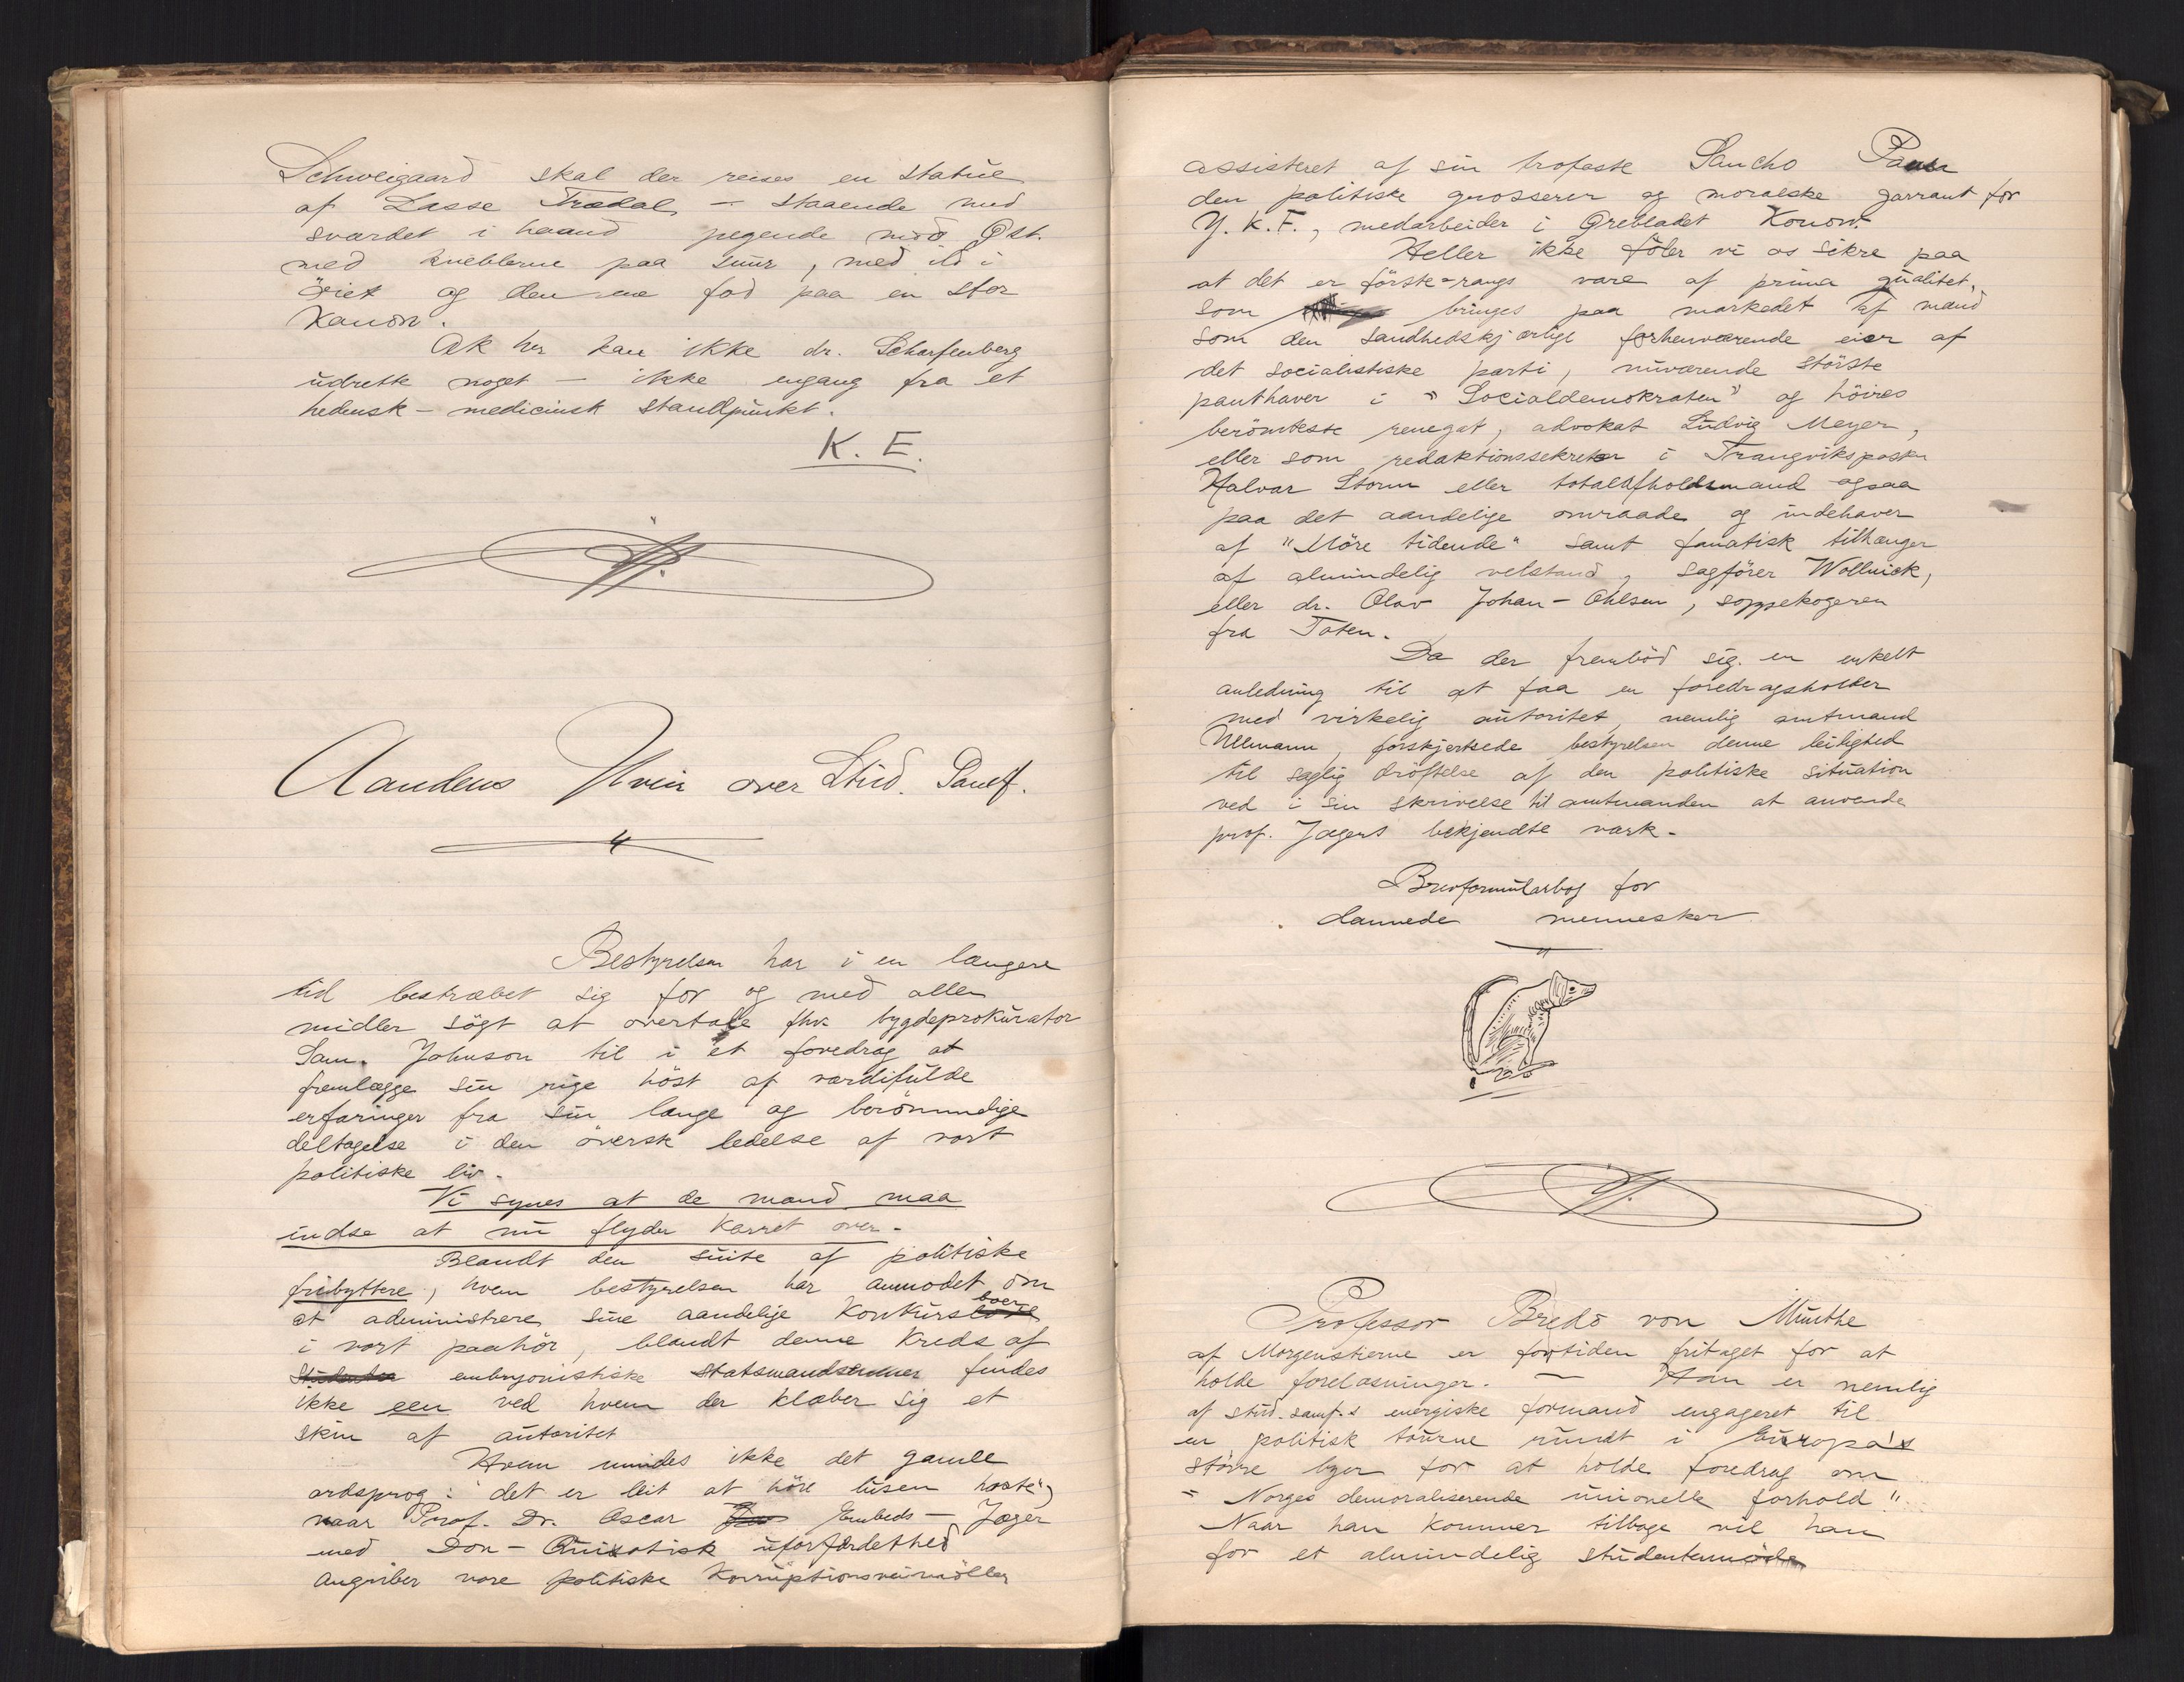 Schweigaard skal der reises en statue
af Lasse Trædal, – staaende med
sværdet i haand pegende mod Øst.
med kneblerne paa snur, med ild i
öiet og den ene fod paa en stor
Kanon.
Ak her kan ikke dr. Scharfenberg
udrette noget – ikke engang fra et
hedensk – medicinsk standpunkt.
K. E.
Aandens Hvin over Stud. Samf.
Bestyrelsen har i en længere
tid bestræbet sig for og med alle
midler sögt at overtale fhv. bygdeprokurator
Sam. Johnson til i et foredrag at
fremlægge sin rige höst af værdifulde
erfaringer fra sin lange og berömmelige
deltagelse i den överste ledelse af vort
politiske liv.
Vi synes at de mænd maa
indse at nu flyder Karret over.
Blandt den suite af politiske
fribyttere, hvem bestyrelsen har anmodet om
at administrere sine aandelige Konkursboer
i vort paahör, blandt denne Kreds af
Studenter embryonistiske statsmandsemner findes
ikke een ved hvem der klæber sig et
skin af autoritet
Hvem mindes ikke det gamle
ordsprog: "det er leit at höre lusen hoste",
naar Prof. Dr. Oscar Embeds – Jæger
med Don – Quixotisk uforfærdethed
angriber vore politiske Korruptionsveirmöller
assisteret af sin trofaste Sancho Panza
den politiske grosserer og moralske garrant for
Y. K. F., medarbeider i Örebladet Konow.
Heller ikke föler vi os sikre paa
at det er förste-rangs vare af prima qualitet,
som bringes paa markedet af mænd
som den sandhedskjærlige forhenværende eier af
det socialistiske parti, nuværende störste
panthaver i "Socialdemokraten" og höires
berömteste renegat, advokat Ludvig Meyer,
eller som redaktionssekretær i Trangviksposten
Halvar Storm eller totalafholdsmand ogsaa
paa det aandelige omraade og indehaver
af "Möre tidende" samt fanatisk tilhænger
af almindelig velstand, sagförer Wollnick,
eller dr. Olav Johan – Ohlsen, soppekogeren
fra Toten.
Da der fremböd sig en enkelt
anledning til at faa en foredragsholder
med virkelig autoritet, nemlig amtmand
Ullmann, forskjertsede bestyrelsen denne leilighed
til saglig dröftelse af den politiske situation
ved i sin skrivelse til amtmanden at anvende
prof. Jægers bekjendte værk.
Brevformularbog for
dannede mennesker
Professor Bredo von Munthe
af Morgenstierne er fortiden fritaget for at
holde forelæsninger. – Han er nemlig
af stud. samf.s energiske formand engageret til
en politisk tourne rundt i Europa's
större byer for at holde foredrag om
"Norges demoraliserende unionelle forhold"
Naar han kommer tilbage vil han
for et almindelig studentermöde